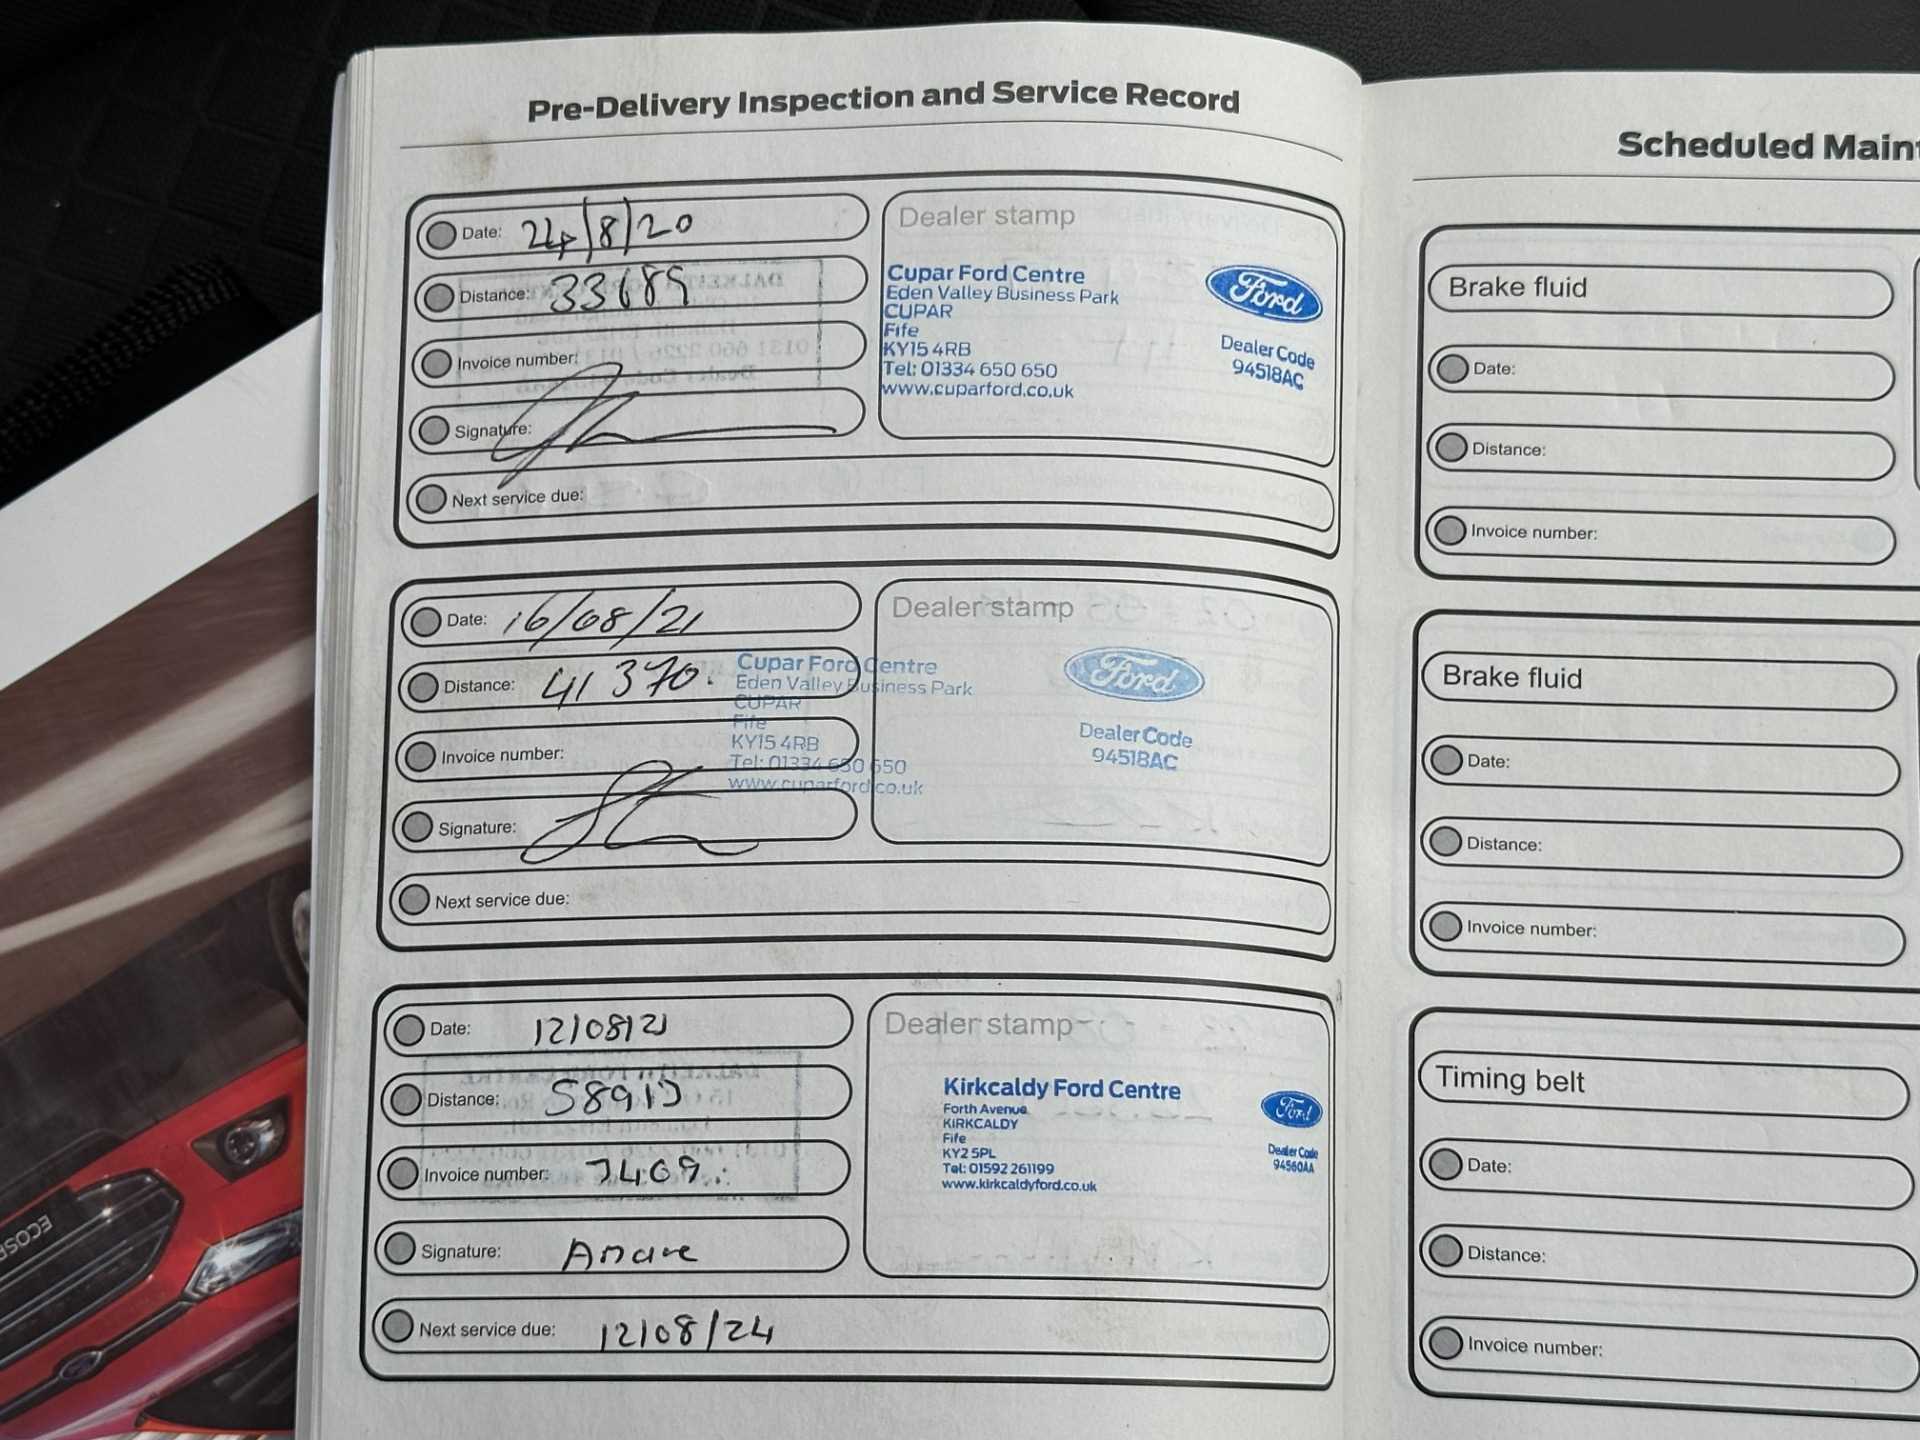 Pre-Delivery Inspection and Service Record
Date: 24/8/20
Distance: 33689
Invoice number:
Signature:
Next service due:
Dealer stamp
Cupar Ford Centre
Eden Valley Business Park
CUPAR
Fife
KY15 4RB
Tel: 01334 650 650
www.cuparford.co.uk
Ford
Dealer Code
94518AC
Date: 16/08/21
Distance: 41370.
Invoice number:
Signature:
Next service due:
Dealer stamp
Cupar Ford Centre
Eden Valley Business Park
CUPAR
Fife
KY15 4RB
Tel: 01334 650 650
www.cuparford.co.uk
Ford
Dealer Code
94518AC
Date: 12/08/21
Distance:
Invoice number:
Signature:
Next service due: 12/08/24
Dealer stamp
Kirkcaldy Ford Centre
Forth Avenue
KIRKCALDY
Fife
KY2 5PL
Tel: 01592 261199
www.kirkcaldyford.co.uk
Ford
Dealer Code
94560AA
Scheduled Maint
Brake fluid
Date:
Distance:
Invoice number:
Brake fluid
Date:
Distance:
Invoice number:
Timing belt
Date:
Distance:
Invoice number: